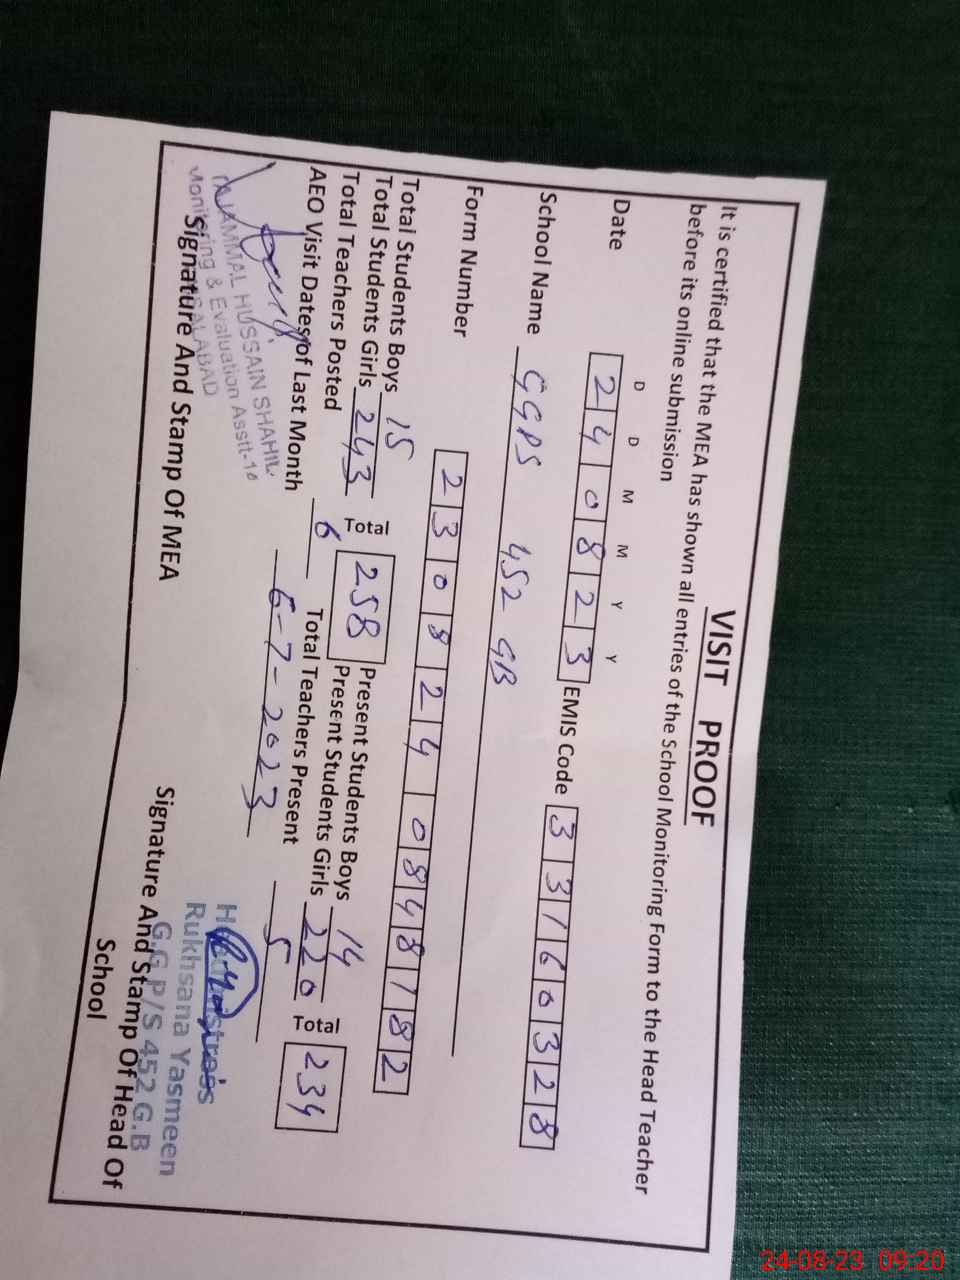 VISIT PROOF
It is certified that the MEA has shown all entries of the School Monitoring Form to the Head Teacher
before its online submission
D D M M Y Y
Date 2 4 0 8 2 3 EMIS Code 3 3 1 6 0 3 2 8
School Name GGPS 452 GB
Form Number 2 3 0 8 2 4 0 8 4 8 1 8 2
Total Students Boys 15 Present Students Boys 14
Total Students Girls 243 Total 258 Present Students Girls 220 Total 234
Total Teachers Posted 6 Total Teachers Present 5
AEO Visit Dates of Last Month 6-7-2023
HUSSAIN SHAHIL
Monitoring & Evaluation Asstt-10
Signature And Stamp Of MEA
Headmistress
Rukhsana Yasmeen
G.G P/S 452 G.B
Signature And Stamp Of Head Of
School
24-08-23 09:20